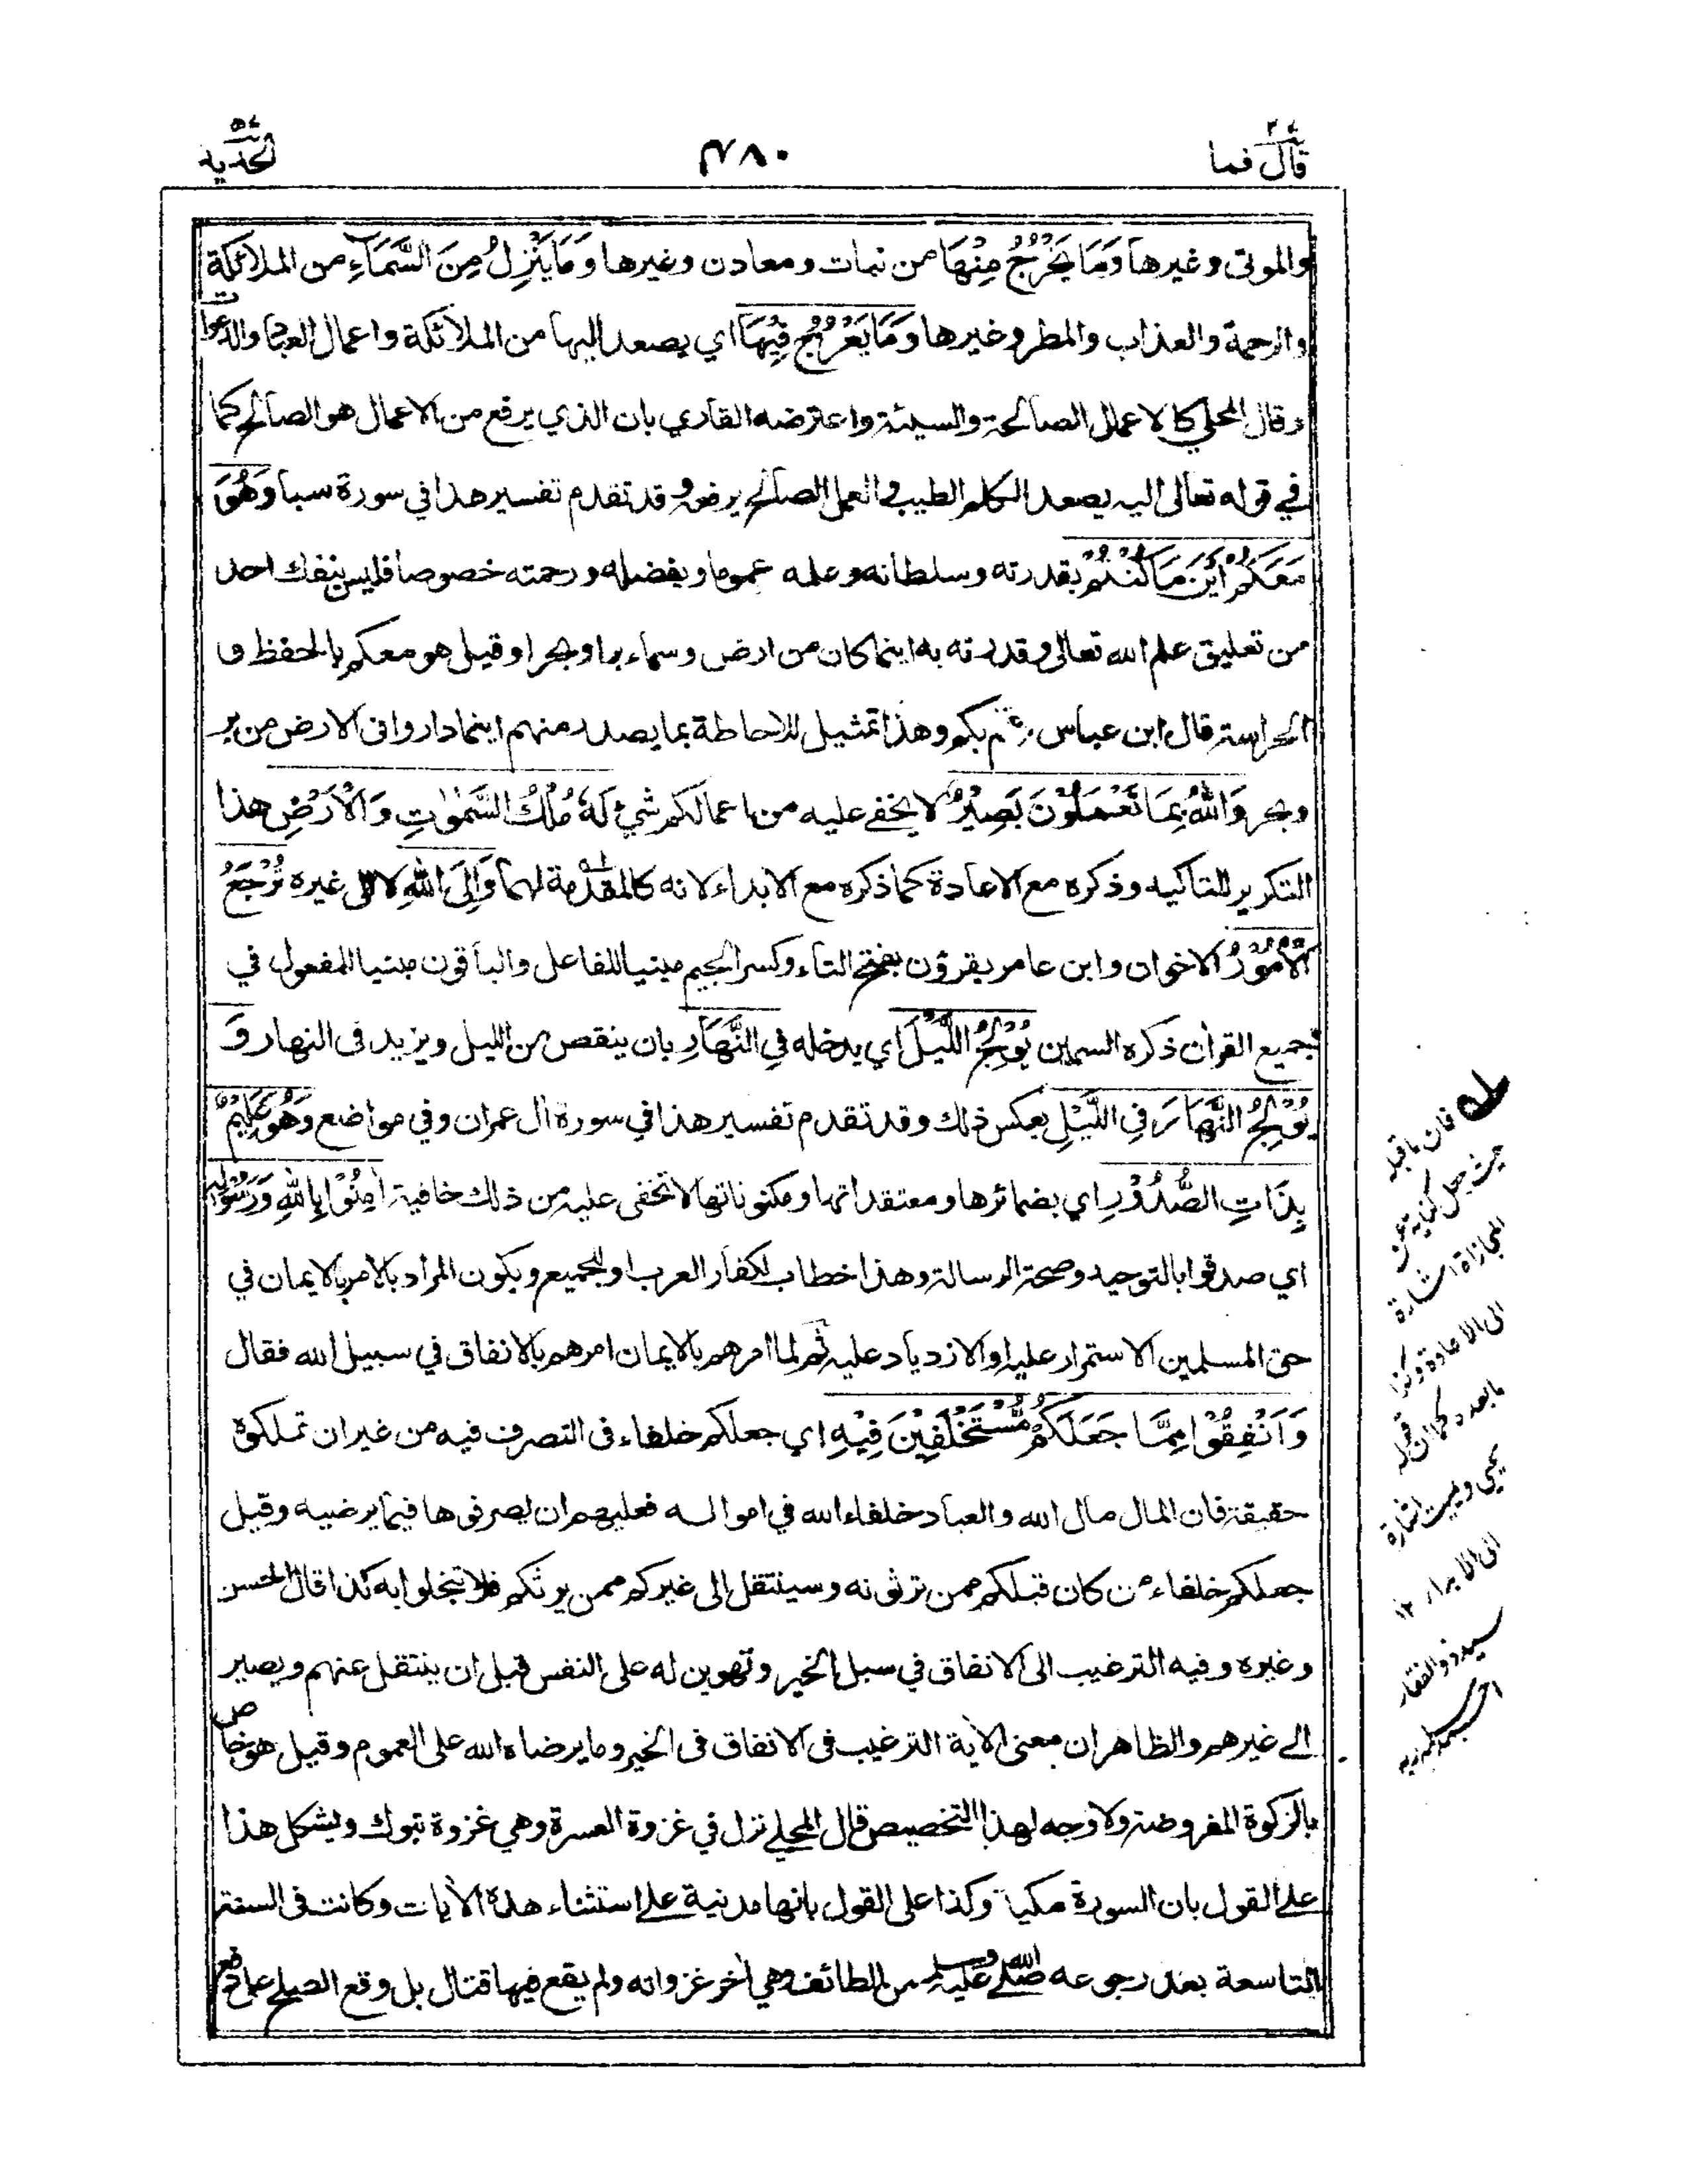 قال فما ٢٧
٤٨٠
الحديد ٥٧
والموتى وغيرها وَمَا يَخْرُجُ مِنْهَا من نبات ومعادن وغيرها وَمَا يَنْزِلُ مِنَ السَّمَآءِ من الملائكة
والرحمة والعذاب والمطر وغيرها وَمَا يَعْرُجُ فِيْهَا اي يصعد اليها من الملائكة واعمال العباد والدعوات
وقال المحلي كالاعمال الصالحة والسيئة واعترضه القاري بان الذي يرفع من الاعمال هو الصالح كما
في قوله تعالى اليه يصعد الكلم الطيب والعمل الصالح يرفعه وقد تقدم تفسير هذا في سورة سبأ وَهُوَ
مَعَكُمْ اَيْنَ مَا كُنْتُمْ بقدرته وسلطانه وعلمه عموما وبفضله ورحمته خصوصا فليس ينفك احد
من تعليق علم الله تعالى وقدرته به اينما كان من ارض وسماء برا وبحرا وقيل هو معكم بالحفظ و
الحراسة قال ابن عباس عالم بكم وهذا تمثيل للاحاطة بما يصدر منهم اينما داروا في الارض من بر
وبحر وَاللهُ بِمَا تَعْمَلُوْنَ بَصِيْرٌ لا يخفى عليه من اعمالكم شيئ لَهُ مُلْكُ السَّمٰوٰتِ وَالْاَرْضِ هذا
التكرير للتاكيد وذكره مع الاعادة كما ذكره مع الابداء لانه كالمقدمة لهما وَاِلَى اللهِ لا الى غيره تُرْجَعُ
الْاُمُوْرُ الاخوان وابن عامر يقرؤن بفتح التاء وكسر الجيم مبنيا للفاعل والباقون مبنيا للمفعول في
جميع القرآن ذكره السمين يُوْلِجُ اللَّيْلَ اي يدخله فِي النَّهَارِ بان ينقص من الليل ويزيد في النهار وَ
يُوْلِجُ النَّهَارَ فِي اللَّيْلِ بعكس ذلك وقد تقدم تفسير هذا في سورة آل عمران وفي مواضع وَهُوَ عَلِيْمٌ
بِذَاتِ الصُّدُوْرِ اي بضمائرها ومعتقداتها ومكنوناتها لا تخفى عليه من ذلك خافية اٰمِنُوْا بِاللهِ وَرَسُوْلِهٖ
اي صدقوا بالتوحيد وصحة الرسالة وهذا خطاب لكفار العرب او للجميع ويكون المراد بالامر بالايمان في
حق المسلمين الاستمرار عليه او الازدياد عليه ثم لما امرهم بالايمان امرهم بالانفاق في سبيل الله فقال
وَاَنْفِقُوْا مِمَّا جَعَلَكُمْ مُّسْتَخْلَفِيْنَ فِيْهِ اي جعلكم خلفاء في التصرف فيه من غير ان تملكوه
حقيقة فان المال مال الله والعباد خلفاء الله في امواله فعليهم ان يصرفوها فيما يرضيه وقيل
جعلكم خلفاء من كان قبلكم ممن ترثونه وسينتقل الى غيركم ممن يرثكم فلا تبخلوا به كذا قال الحسن
وغيره وفيه الترغيب الى الانفاق في سبل الخير وتهوين له على النفس قبل ان ينتقل عنهم ويصير
الى غيرهم والظاهر ان معنى الآية الترغيب في الانفاق في الخير وما يرضاه الله على العموم وقيل هو خاص
بالزكوة المفروضة ولا وجه لهذا التخصيص قال المحلي نزل في غزوة العسرة وهي غزوة تبوك ويشكل هذا
على القول بان السورة مكية وكذا على القول بانها مدنية على استثناء هذه الآيات وكانت في السنة
التاسعة بعد رجوعه صلى الله عليه وسلم من الطائف وهي آخر غزواته ولم يقع فيها قتال بل وقع الصلح على دفع
له فان ما قبله
حيث جعل كناية عن
المجازاة اشارة
الى الاعادة وكذا
ما بعده كما ان قوله
يحيي ويميت اشارة
الى الابداء ١٢
سيد ذو الفقار
احمد